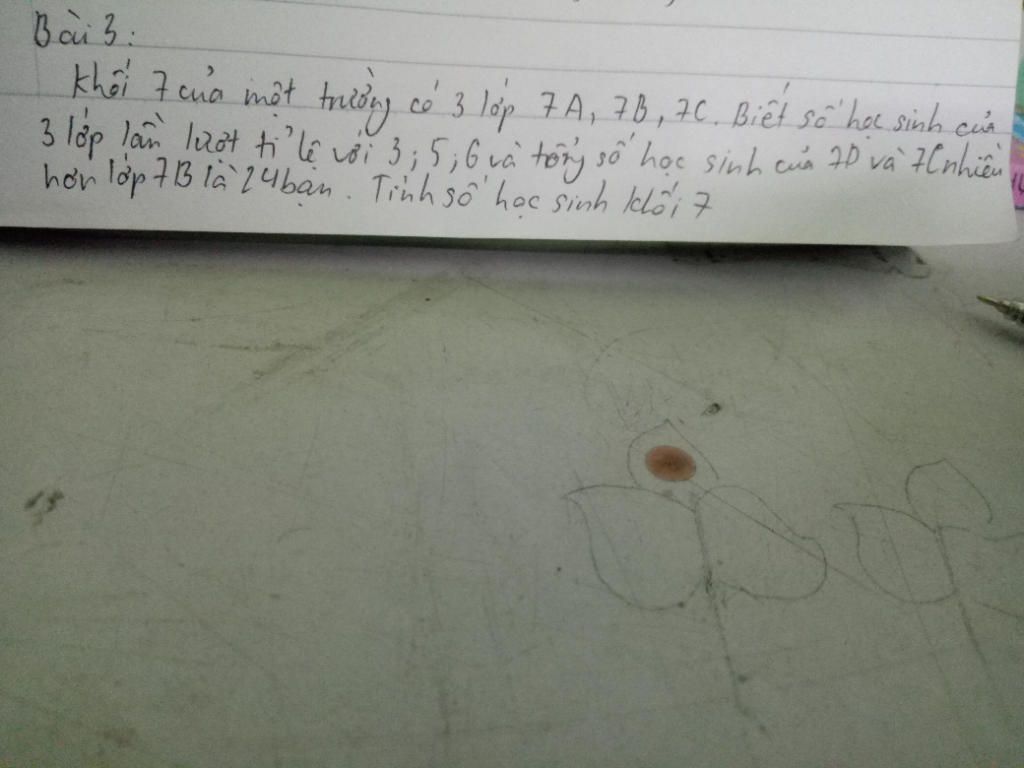 Bài 3:
Khối 7 của một trường có 3 lớp 7A, 7B, 7C. Biết số học sinh của
3 lớp lần lượt tỉ lệ với 3; 5; 6 và tổng số học sinh của 7D và 7C nhiều
hơn lớp 7B là 24 bạn. Tính số học sinh khối 7